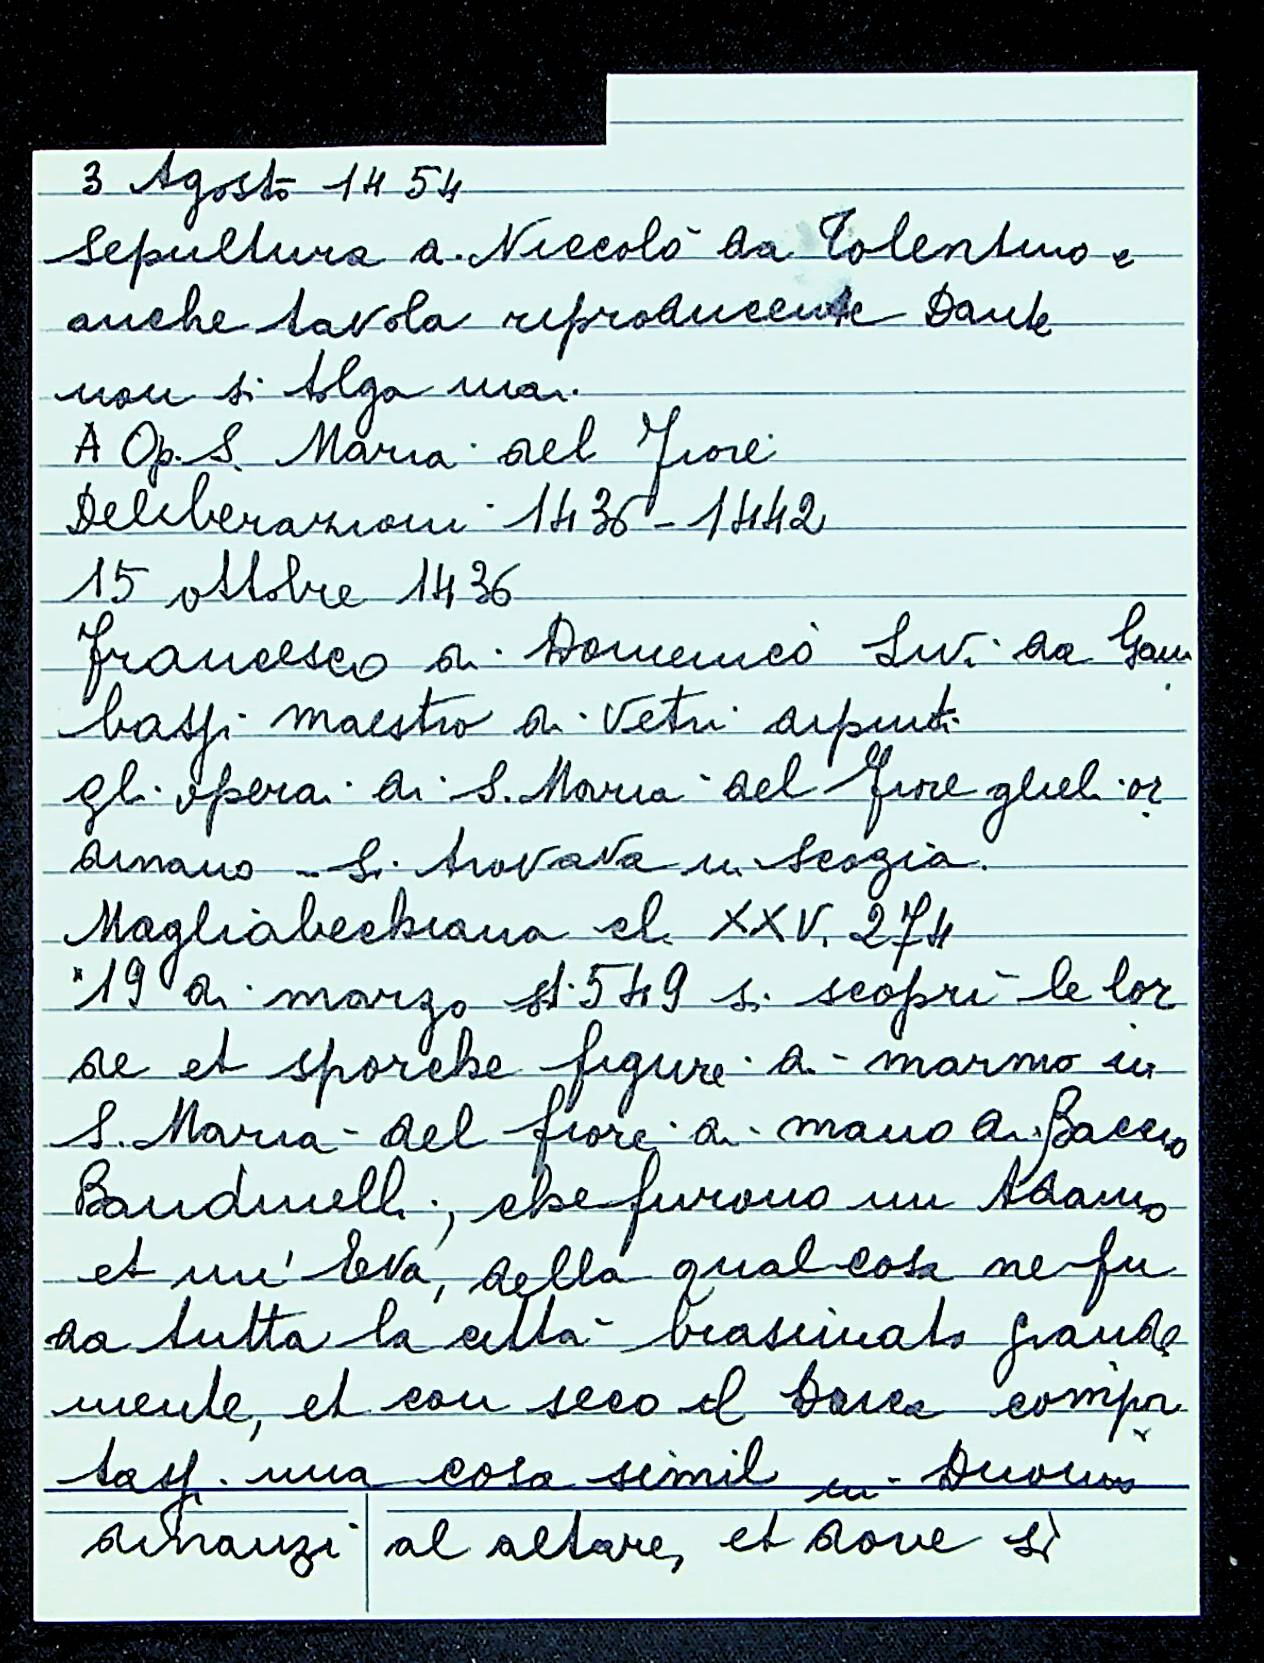 3 Agosto 1454
Sepultura a Niccolò da Tolentino e
anche tavola riproducente Dante
non si tolga mai.
A Op. S. Maria del Fiore
Deliberazioni 1436-1442
15 ottobre 1436
Francesco di Domenico Livi da Gam
bassi maestro di vetri dipinti
gli operai di S. Maria del Fiore glieli or
dinano - Si trovava in Scozia.
Magliabechiana cl. XXV, 274
"19 di marzo 1549 si scoprì le lor
de et sporche figure di marmo in
S. Maria del fiore di mano di Baccio
Bandinelli, che furono un Adamo
et un' Eva, della qual cosa ne fu
da tutta la città biasimato grande
mente, et con seco il Duca compor
tassi una cosa simil in Duomo
dinanzi al altare, et dove si